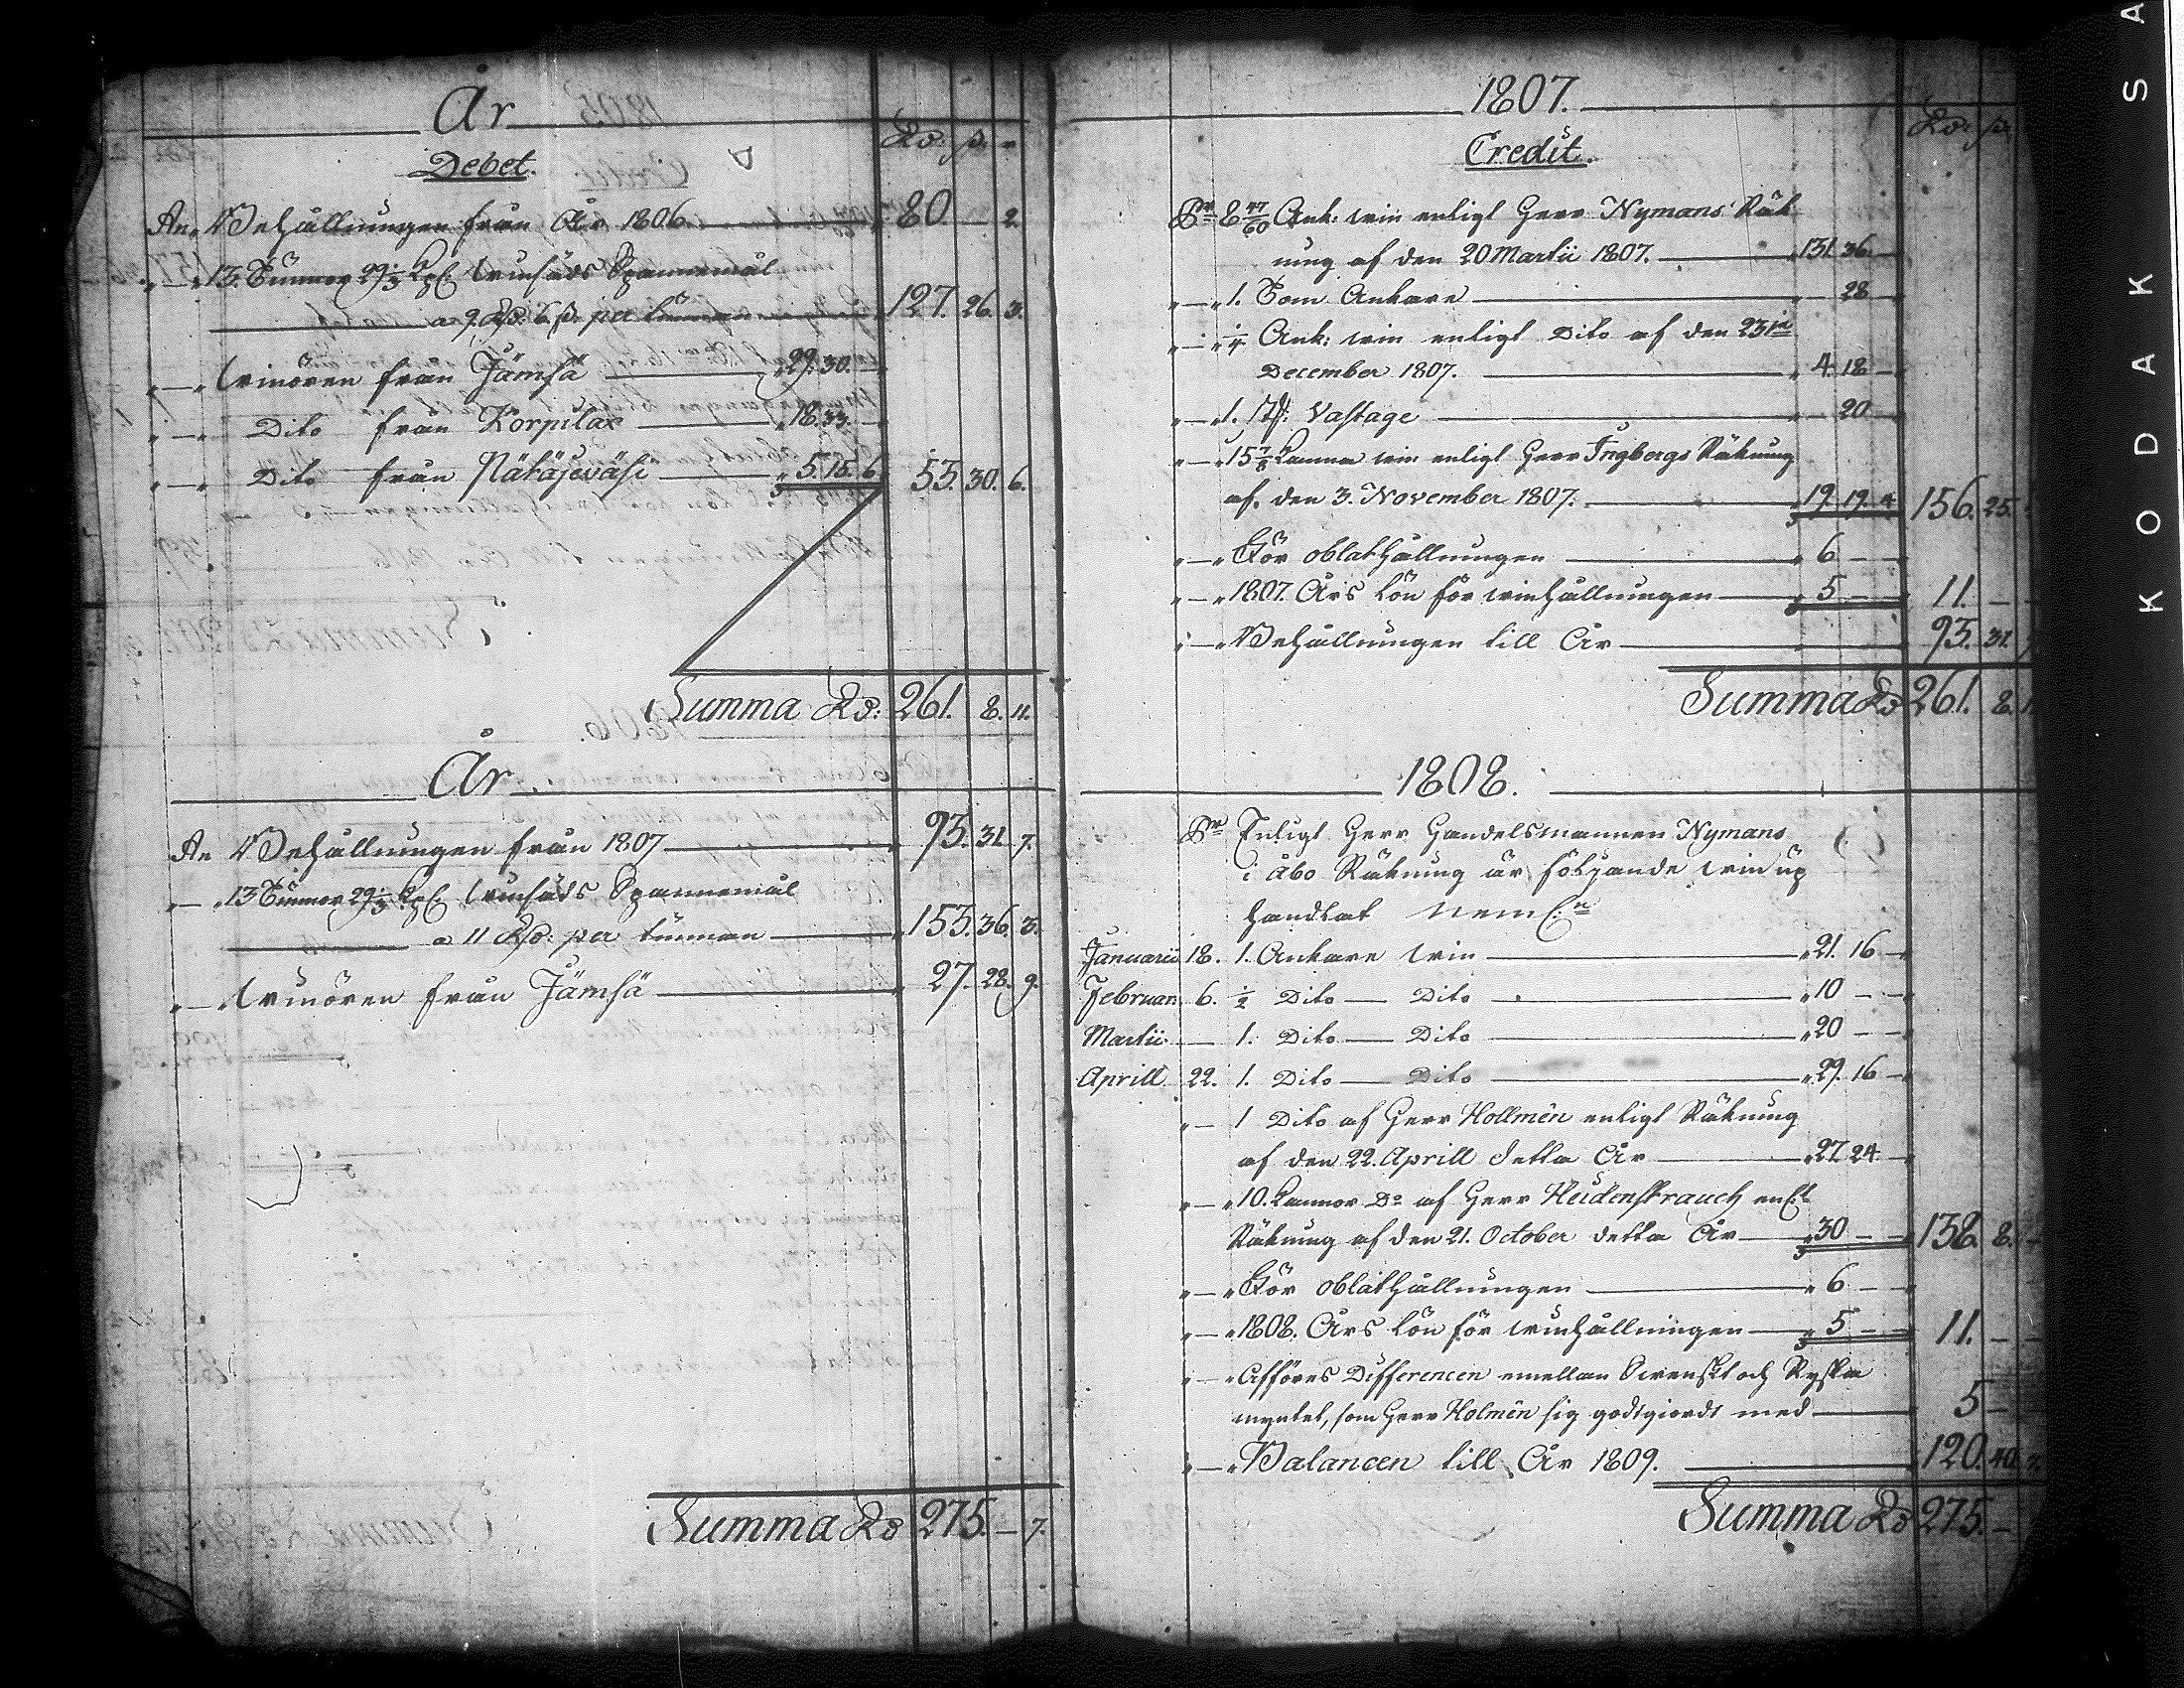 År
Rd: s. r
Debet.
An Behållningen från År 1806. 80. — 2.
" — " 13. Tunnor 29 1/3 Kpl. Winsäds Spannemål
a 9. Rd: 6 s. per tunnan 127. 26. 3.
" — " Winören från Jämsä 29. 30. —
" — " Dito från Korpilax 18. 33. —
" — " Dito från Pätäjeväsi 5. 15. 6 53. 30. 6.
Summa Rd: 261. 8. 11.
År
An Behållningen från 1807 93. 31. 7.
" — " 13 Tunnor 29 1/3 Kpl. Winsäds Spannemål
a 11 Rd: per tunnan 153. 36. 3.
" — " Winören från Jämsä 27. 28. 9.
Summa Rd 275. — 7.
1807.
Rd: s.
Credit.
Pr 8 47/60 Ank: win enligt Herr Nymans Räk
ning af den 20 Martii 1807. 131. 36.
" — " 1. Tom Ankare 28
" — " 1/4 Ank: win enligt Dito af den 23je
December 1807. 4. 18 —
" — " 1. St: Vastage 20
" — " 15 7/8 Kanna win enligt Herr Ingbergs Räkning
af den 3. November 1807. 19. 19. 4 156. 25.
" — " För oblathållningen 6 — —
" — " 1807. Års lön för winhållningen 5 — — 11. —
" — " Behållningen till År 93. 31.
Summa Rd 261. 8.
1808.
Pr Enligt Herr Handelsmannen Nymans
i Åbo Räkning är följande win up
handlat neml:n
Januarii 18. 1. Ankare win 21. 16 —
Februari 6. 1/2 Dito — Dito 10 — —
Martii — 1. Dito — Dito 20 — —
Aprill 22. 1. Dito — Dito 29. 16 —
" — 1 Dito af Herr Hollmén enligt Räkning
af den 22. Aprill detta År 27. 24
" — " 10. Kannor Do af Herr Heidenstrauch enl:t
Räkning af den 21. October detta År 30 — — 138. 8.
" — " För oblathållningen 6 — —
" — " 1808. Års lön för winhållningen 5 — — 11. —
" — " Afföres Differencen emellan Svenskt och Ryska
myntet, som Herr Holmén sig godtgiordt med 5 —
" — " Balancen till År 1809. 120. 40.
Summa Rd 275. —
KODAK SA